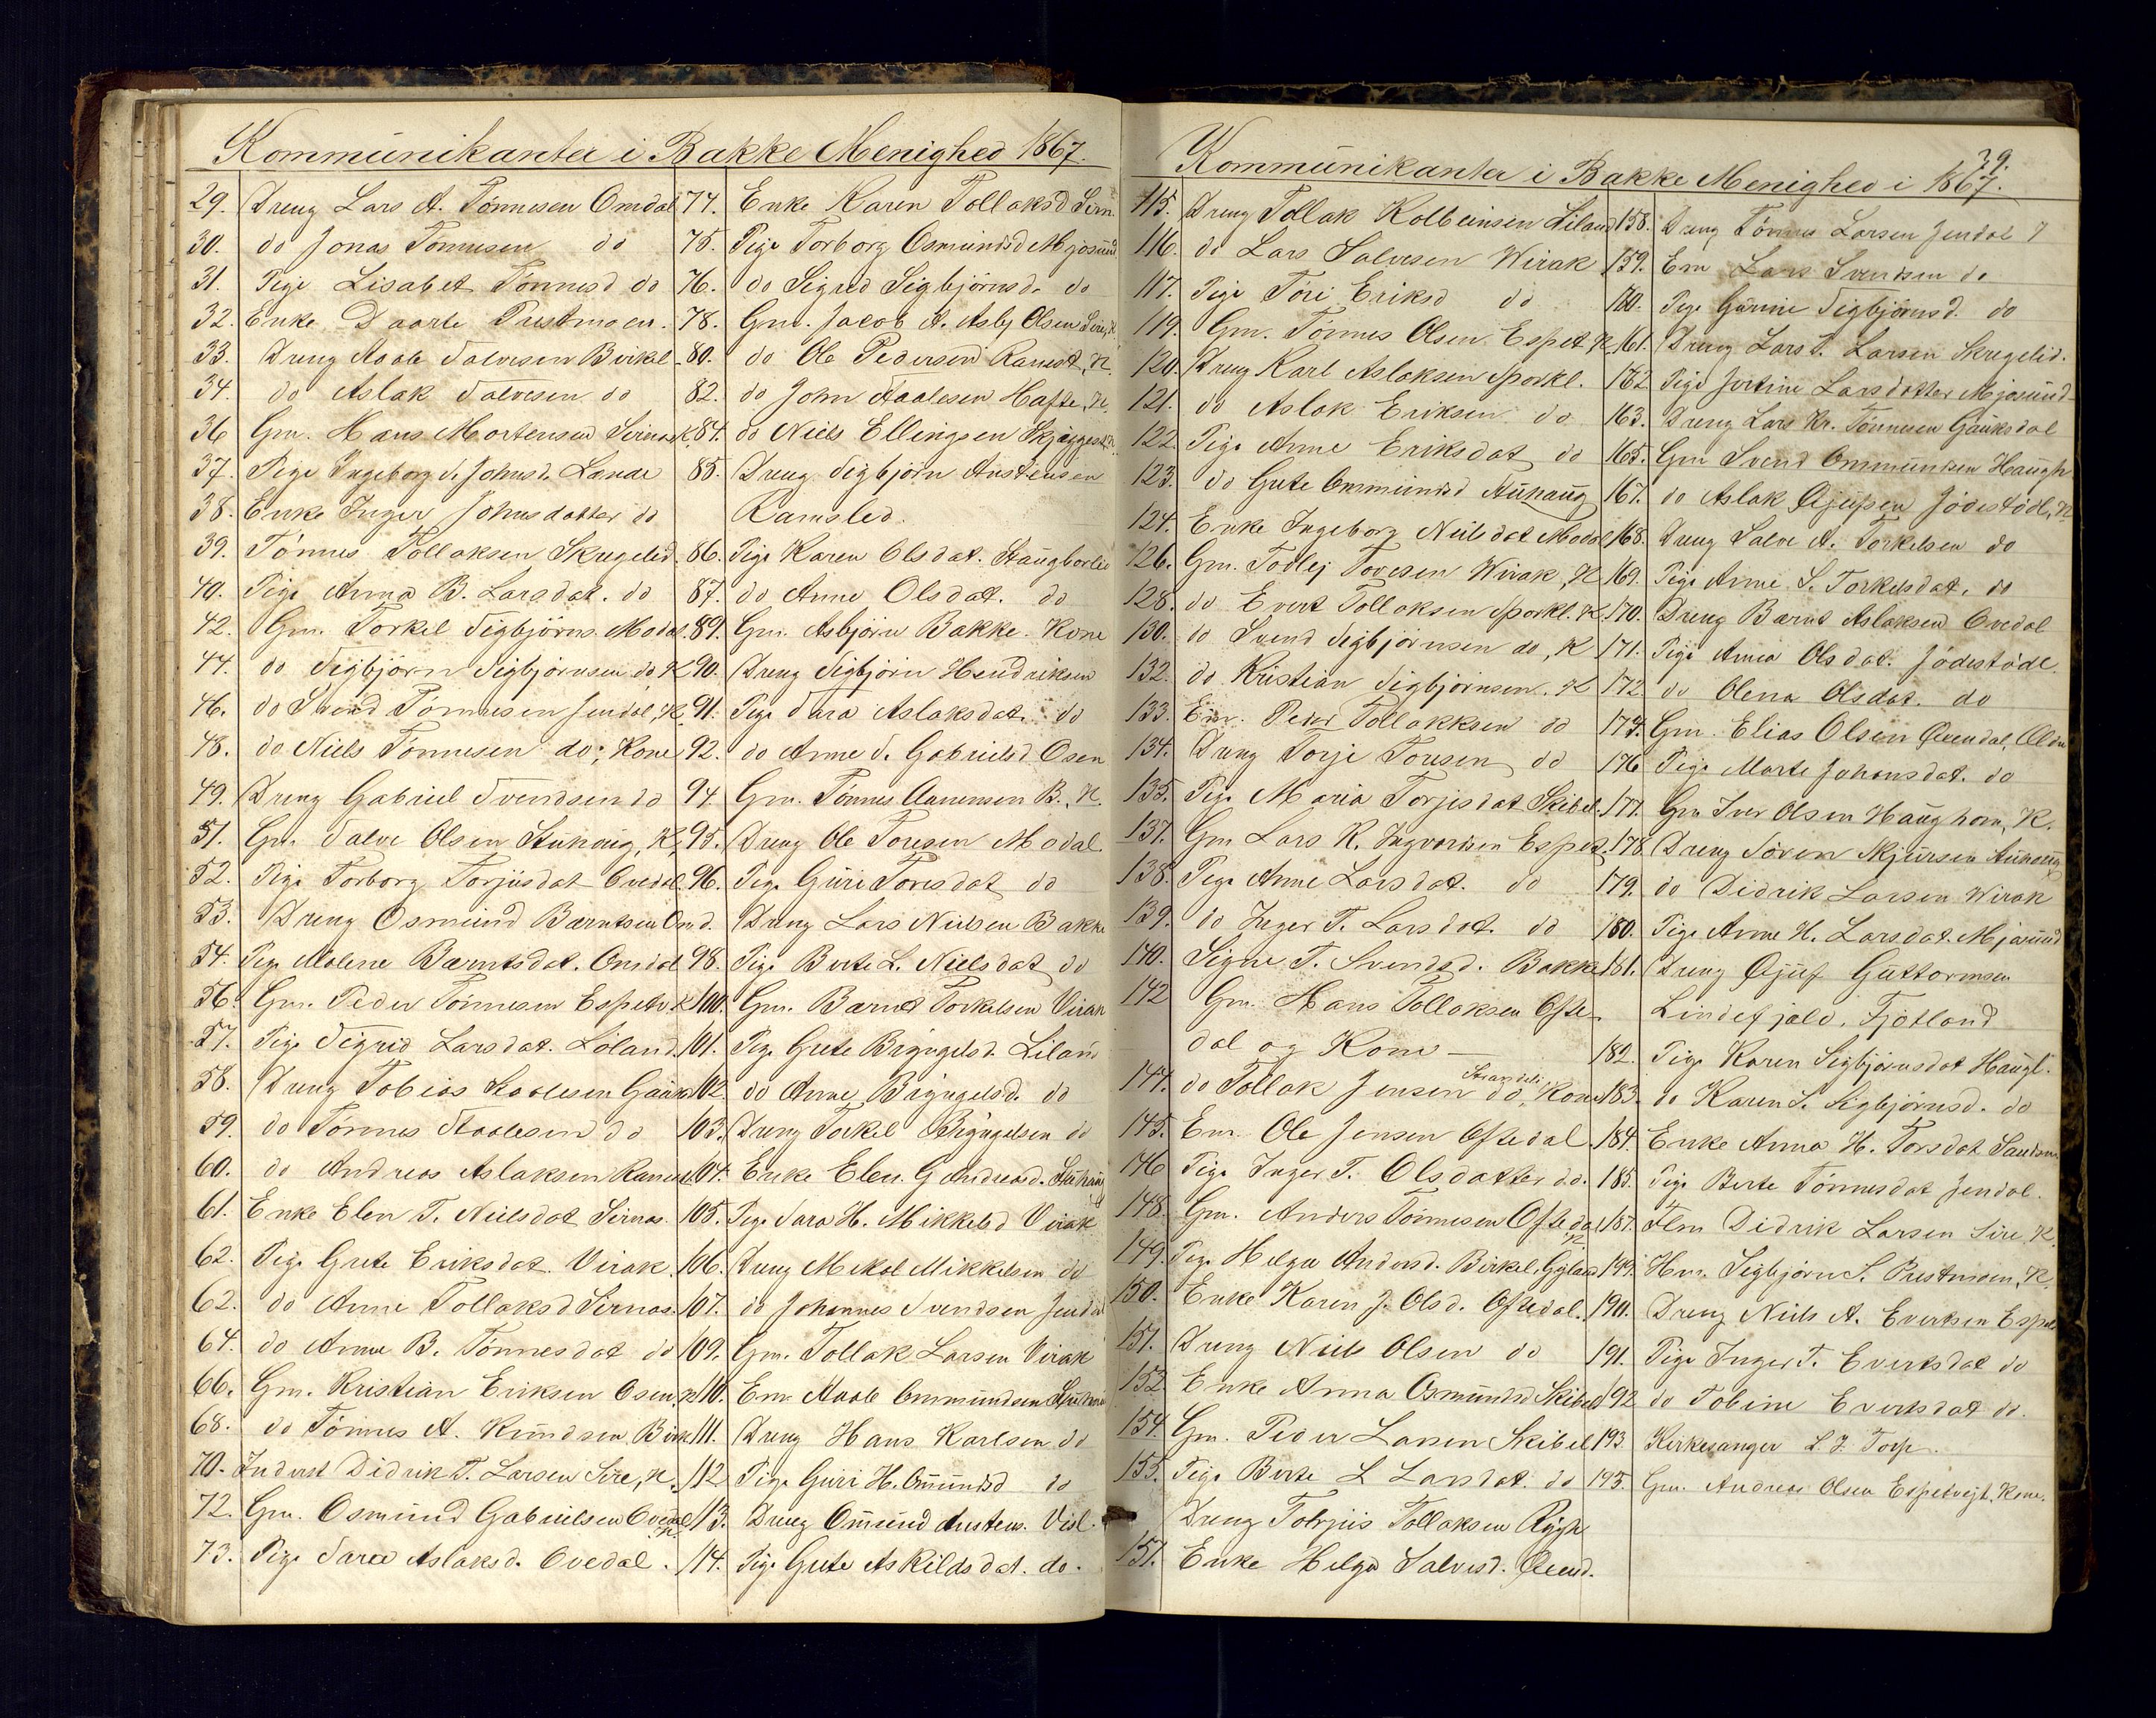 Kommunikanter i Bakke Menighed 1867.
29. Dreng Lars A. Tönnesen Omdal
30. do Jonas Tönnesen do
31. Pige Lisabet Tönnesd do
32. Enke Daarte Prestmoen.
33. Dreng Staale Salvesen Birkel.
34. do Aslak Salvesen do
36 Gm. Hans Mortensen Sirnes K.
37. Pige Ingeborg S. Johnsd. Lande
38. Enke Inger Johnsdatter do
39. Tönnes Tollaksen Skregelid.
40. Pige Anna B. Larsdat. do
42. Gm. Torkel Sigbjörns. Modal.
44. do Sigbjörn Sigbjörnsen do K
46. do Svend Tönnesen Jendal, K.
48. do Niels Tönnesen do; Kone
49. Dreng Gabriel Svendsen do
51. Gm. Salve Olsen Stuhaug, K,
52. Pige Torborg Torjusdat Ovedal.
53. Dreng Osmund Bærntsen Omd.
54. Pige Malene Bærntsdat. Omdal
56. Gm. Peder Tönnesen Espetv. K
57. Pige Sigrid Larsdat. Löland.
58. Dreng Tobias Staalesen Gauks
59. do Tönnes Staalesen do
60. do Andreas Aslaksen Ramsl.
61. Enke Elen T. Nielsdat Sirnes.
62. Pige Grete Eriksdat. Virak.
62. do Anne Tollaksd Sirnas.
64. do Anne B. Tönnesdat do
66. Gm. Kristian Eriksen Osen, K
68. do Tönnes A. Knudsen Birk
70. Inderst Didrik T. Larsen Sire, K.
72. Gm. Osmund Gabrielsen Ovedal, K.
73. Pige Sara Aslaksd. Ovedal.
74. Enke Karen Tollaksd Sirn.
75. Pige Torborg Osmundsd Mjosund
76. do Sigrid Sigbjörnsd. do
78. Gm. Jacob A. Asbj Olsen Sire, K
80. do Ole Pedersen Ramsl, K.
82. do John Staalesen Hafte, K.
84. do Niels Ellingsen Skjeggest. K
85. Dreng Sigbjörn Austensen
Ramsled.
86. Pige Karen Olsdat. Haugborlie
87. do Anne Olsdat. do
89. Gm. Asbjörn Bakke. Kone
90. Dreng Sigbjörn Hendriksen
91. Pige Sara Aslaksdat. do
92. do Anne S. Gabrielsd Osen
94 Gm. Tönnes Aanensen B., K.
95. Dreng Ole Toresen Modal.
96. Pige Guri Toresdat do
Dreng Lars Nielsen Bakke
98. Pige Berte L. Nielsdat do
100. Gm. Bærnt Torkelsen Virak
101. Pige Grete Bryngelsd. Liland
102. do Anne Bryngelsd. do
103. Dreng Torkel Bryngelsen do
104. Enke Elen G Andreasd. Stuhaug
105. Pige Sara H. Mikkelsd Virak
106. Dreng Mekal Mikkelsen do
107. do Johannes Svendsen Jendal
109. Gm. Tollak Larsen Virak
110. Em. Staale Ommundsen Stuhaug
111. Dreng Hans Karlsen do
112 Pige Guri H. Omundsd do
113. Dreng Omund Austens. Visl.
114. Pige Grete Askildsdat. do.
39.
Kommunikanter i Bakke Menighed i 1867.
115. Dreng Tollak Kolbeinsen Liland
116. do Lars Salvesen Wirak
117. Pige Tori Eriksd do
119. Gm. Tönnes Olsen Espet. K
120. Dreng Karl Aslaksen Sporkl.
121. do Aslak Eriksen do
122. Pige Anne Eriksdat do
123. do Grete Ommundsd Stuhaug
124. Enke Ingeborg Nielsdat Modal
126. Gm. Todlej Tovesen Wirak, K
128. do Evert Tollaksen Sporkl. K.
130. do Svend Sigbjörnsen do, K
132. do Kristian Sigbjörnsen. K
133. Em. Peter Tollakksen do
134. Dreng Torje Toresen do
135. Pige Maria Torjisdat Skibel.
137. Gm Lars R. Ingvartsen Espet.
138. Pige Anne Larsdat. do
139. do Inger T. Larsdat. do
140. Signe T. Svendsd. Bakke
142 Gm. Hans Tollaksen Ofte-
dal og Kone —
144. do Tollak Jensen Strandeli do, Kone
145. Em. Ole Jensen Oftedal.
146 Pige Inger T. Olsdatter do.
148. Gm. Anders Tönnesen Oftedal, K.
149. Pige Helga Andersd. Birkel. Gyland
150. Enke Karen J. Olsd. Oftedal.
151. Dreng Niels Olsen do
152. Enke Anna Osmundsd Skibel
154. Gm. Peder Larsen Skibel
155. Pige Berte L Larsdat. do
Dreng Tobjiis Tollaksen Rygh
157. Enke Helga Salvesd. Qvind.
158. Dreng Tönnes Larsen Jendal
159. Em Lars Svendsen do
160. Pige Gunnie Sigbjörnsd. do
161. Dreng Lars T. Larsen Skregelid.
162 Pige Jertine Larsdatter Mjosund
163. Dreng Lars Kr. Tönnesen Gauksdal
165. Gm Svend Ommundsen Haugh
167. do Aslak Qjeipsen Jödestödl, K
168. Dreng Salve A. Torkelsen do
169. Pige Anne S. Torkelsdat. do
170. Dreng Bærnt Aslaksen Ovedal
171. Pige Anna Olsdat. Jödestödl
172. do Olena Olsdat. do
174. Gm. Elias Olsen Qveendal,
176 Pige Marte Johansdat. do
177. Gm Iver Olsen Haughom, K.
178 Dreng Sören Skjersen Stuhaug
179. do Didrik Larsen Wirak
180. Pige Anne H. Larsdat. Mjosund
181. Dreng Gjulf Guttormsen
Lindefjeld. Fjotland
182. Pige Karen Sigbjörnsdat Haugl.
183. do Karen S. Sigbjörnsd. do
184. Enke Anna H. Torsdat Sandsm
185. Pige Berte Tönnesdat Jendal.
187. Hm Didrik Larsen Sire K.
199. Hm. Sigbjörn S. Prestmoen, K.
190. Dreng Niels A. Evertsen Espet
191. Pige Inger T. Evertsdat do
192 do Tobine Evertsdat do.
193. Kirkesanger L. J. Torp.
195. Gm. Andreas Olsen Espetvejt. Kone.